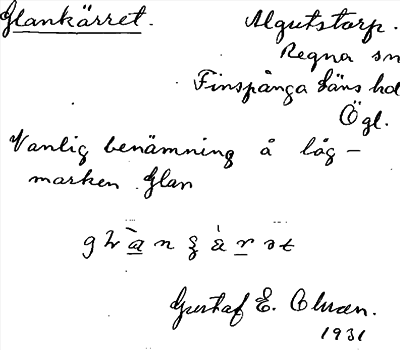 Glankärret.
Algutstorp.
Regna sn
Finspånga läns hd
Ögl.
Vanlig benämning å låg-
marken Glan
Gustaf E. Olsson.
1931